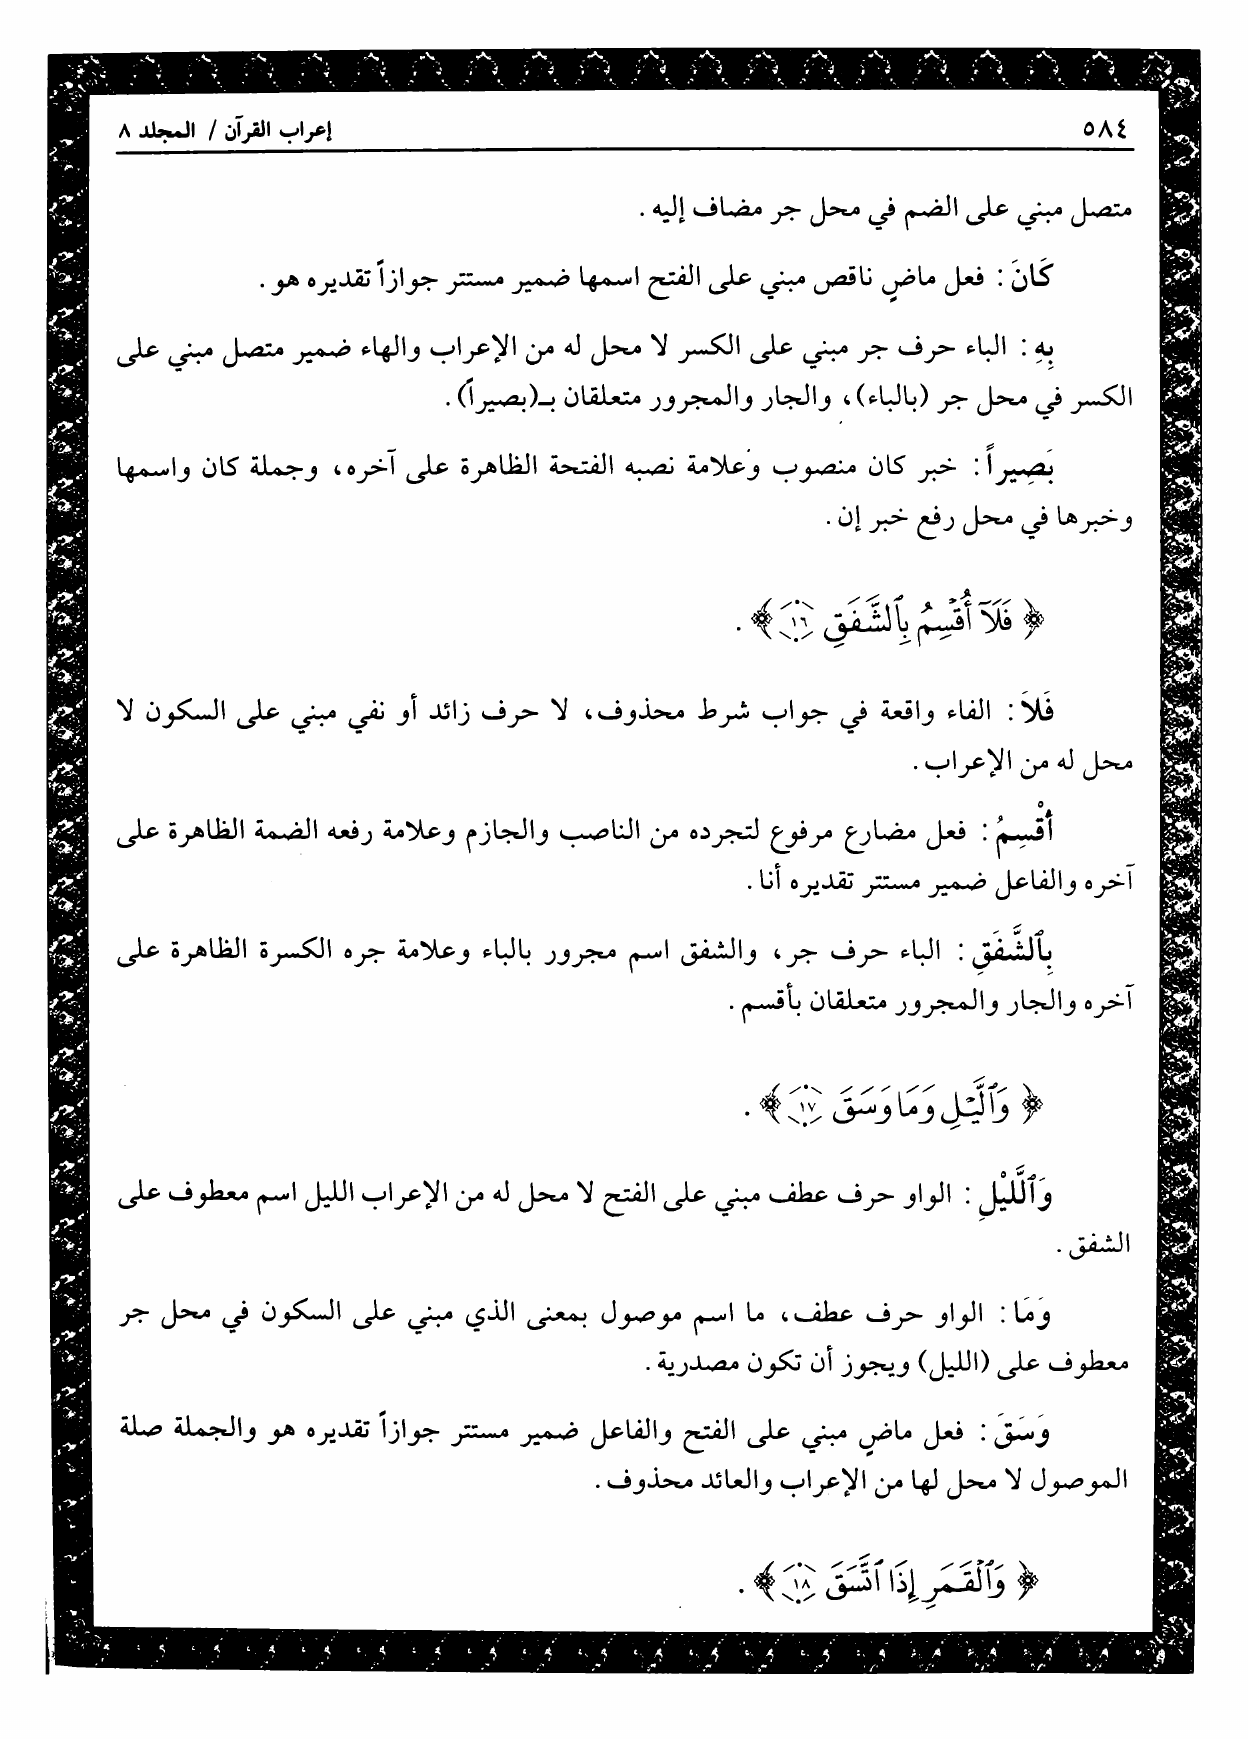 ٥٨٤ إعراب القرآن / المجلد ٨
متصل مبني على الضم في محل جر مضاف إليه .
كَانَ : فعل ماضٍ ناقص مبني على الفتح اسمها ضمير مستتر جوازاً تقديره هو .
بِهِ : الباء حرف جر مبني على الكسر لا محل له من الإعراب والهاء ضمير متصل مبني على
الكسر في محل جر (بالباء)، والجار والمجرور متعلقان بـ(بصيراً).
بَصِيراً : خبر كان منصوب وعلامة نصبه الفتحة الظاهرة على آخره، وجملة كان واسمها
وخبرها في محل رفع خبر إن .
﴿ فَلَآ أُقْسِمُ بِٱلشَّفَقِ ١٦ ﴾ .
فَلاَ : الفاء واقعة في جواب شرط محذوف، لا حرف زائد أو نفي مبني على السكون لا
محل له من الإعراب .
أُقْسِمُ : فعل مضارع مرفوع لتجرده من الناصب والجازم وعلامة رفعه الضمة الظاهرة على
آخره والفاعل ضمير مستتر تقديره أنا .
بِٱلشَّفَقِ : الباء حرف جر، والشفق اسم مجرور بالباء وعلامة جره الكسرة الظاهرة على
آخره والجار والمجرور متعلقان بأقسم .
﴿ وَٱلَّيْلِ وَمَا وَسَقَ ١٧ ﴾ .
وَٱللَّيْلِ : الواو حرف عطف مبني على الفتح لا محل له من الإعراب الليل اسم معطوف على
الشفق .
وَمَا : الواو حرف عطف، ما اسم موصول بمعنى الذي مبني على السكون في محل جر
معطوف على (الليل) ويجوز أن تكون مصدرية .
وَسَقَ : فعل ماضٍ مبني على الفتح والفاعل ضمير مستتر جوازاً تقديره هو والجملة صلة
الموصول لا محل لها من الإعراب والعائد محذوف .
﴿ وَٱلْقَمَرِ إِذَا ٱتَّسَقَ ١٨ ﴾ .